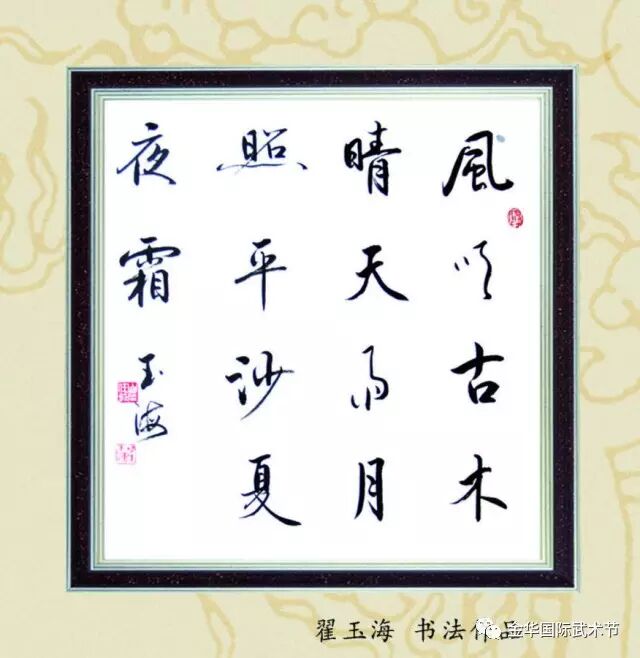 風吹古木
晴天雨月
照平沙夏
夜霜
玉海
翟玉海 书法作品
金华国际武术节